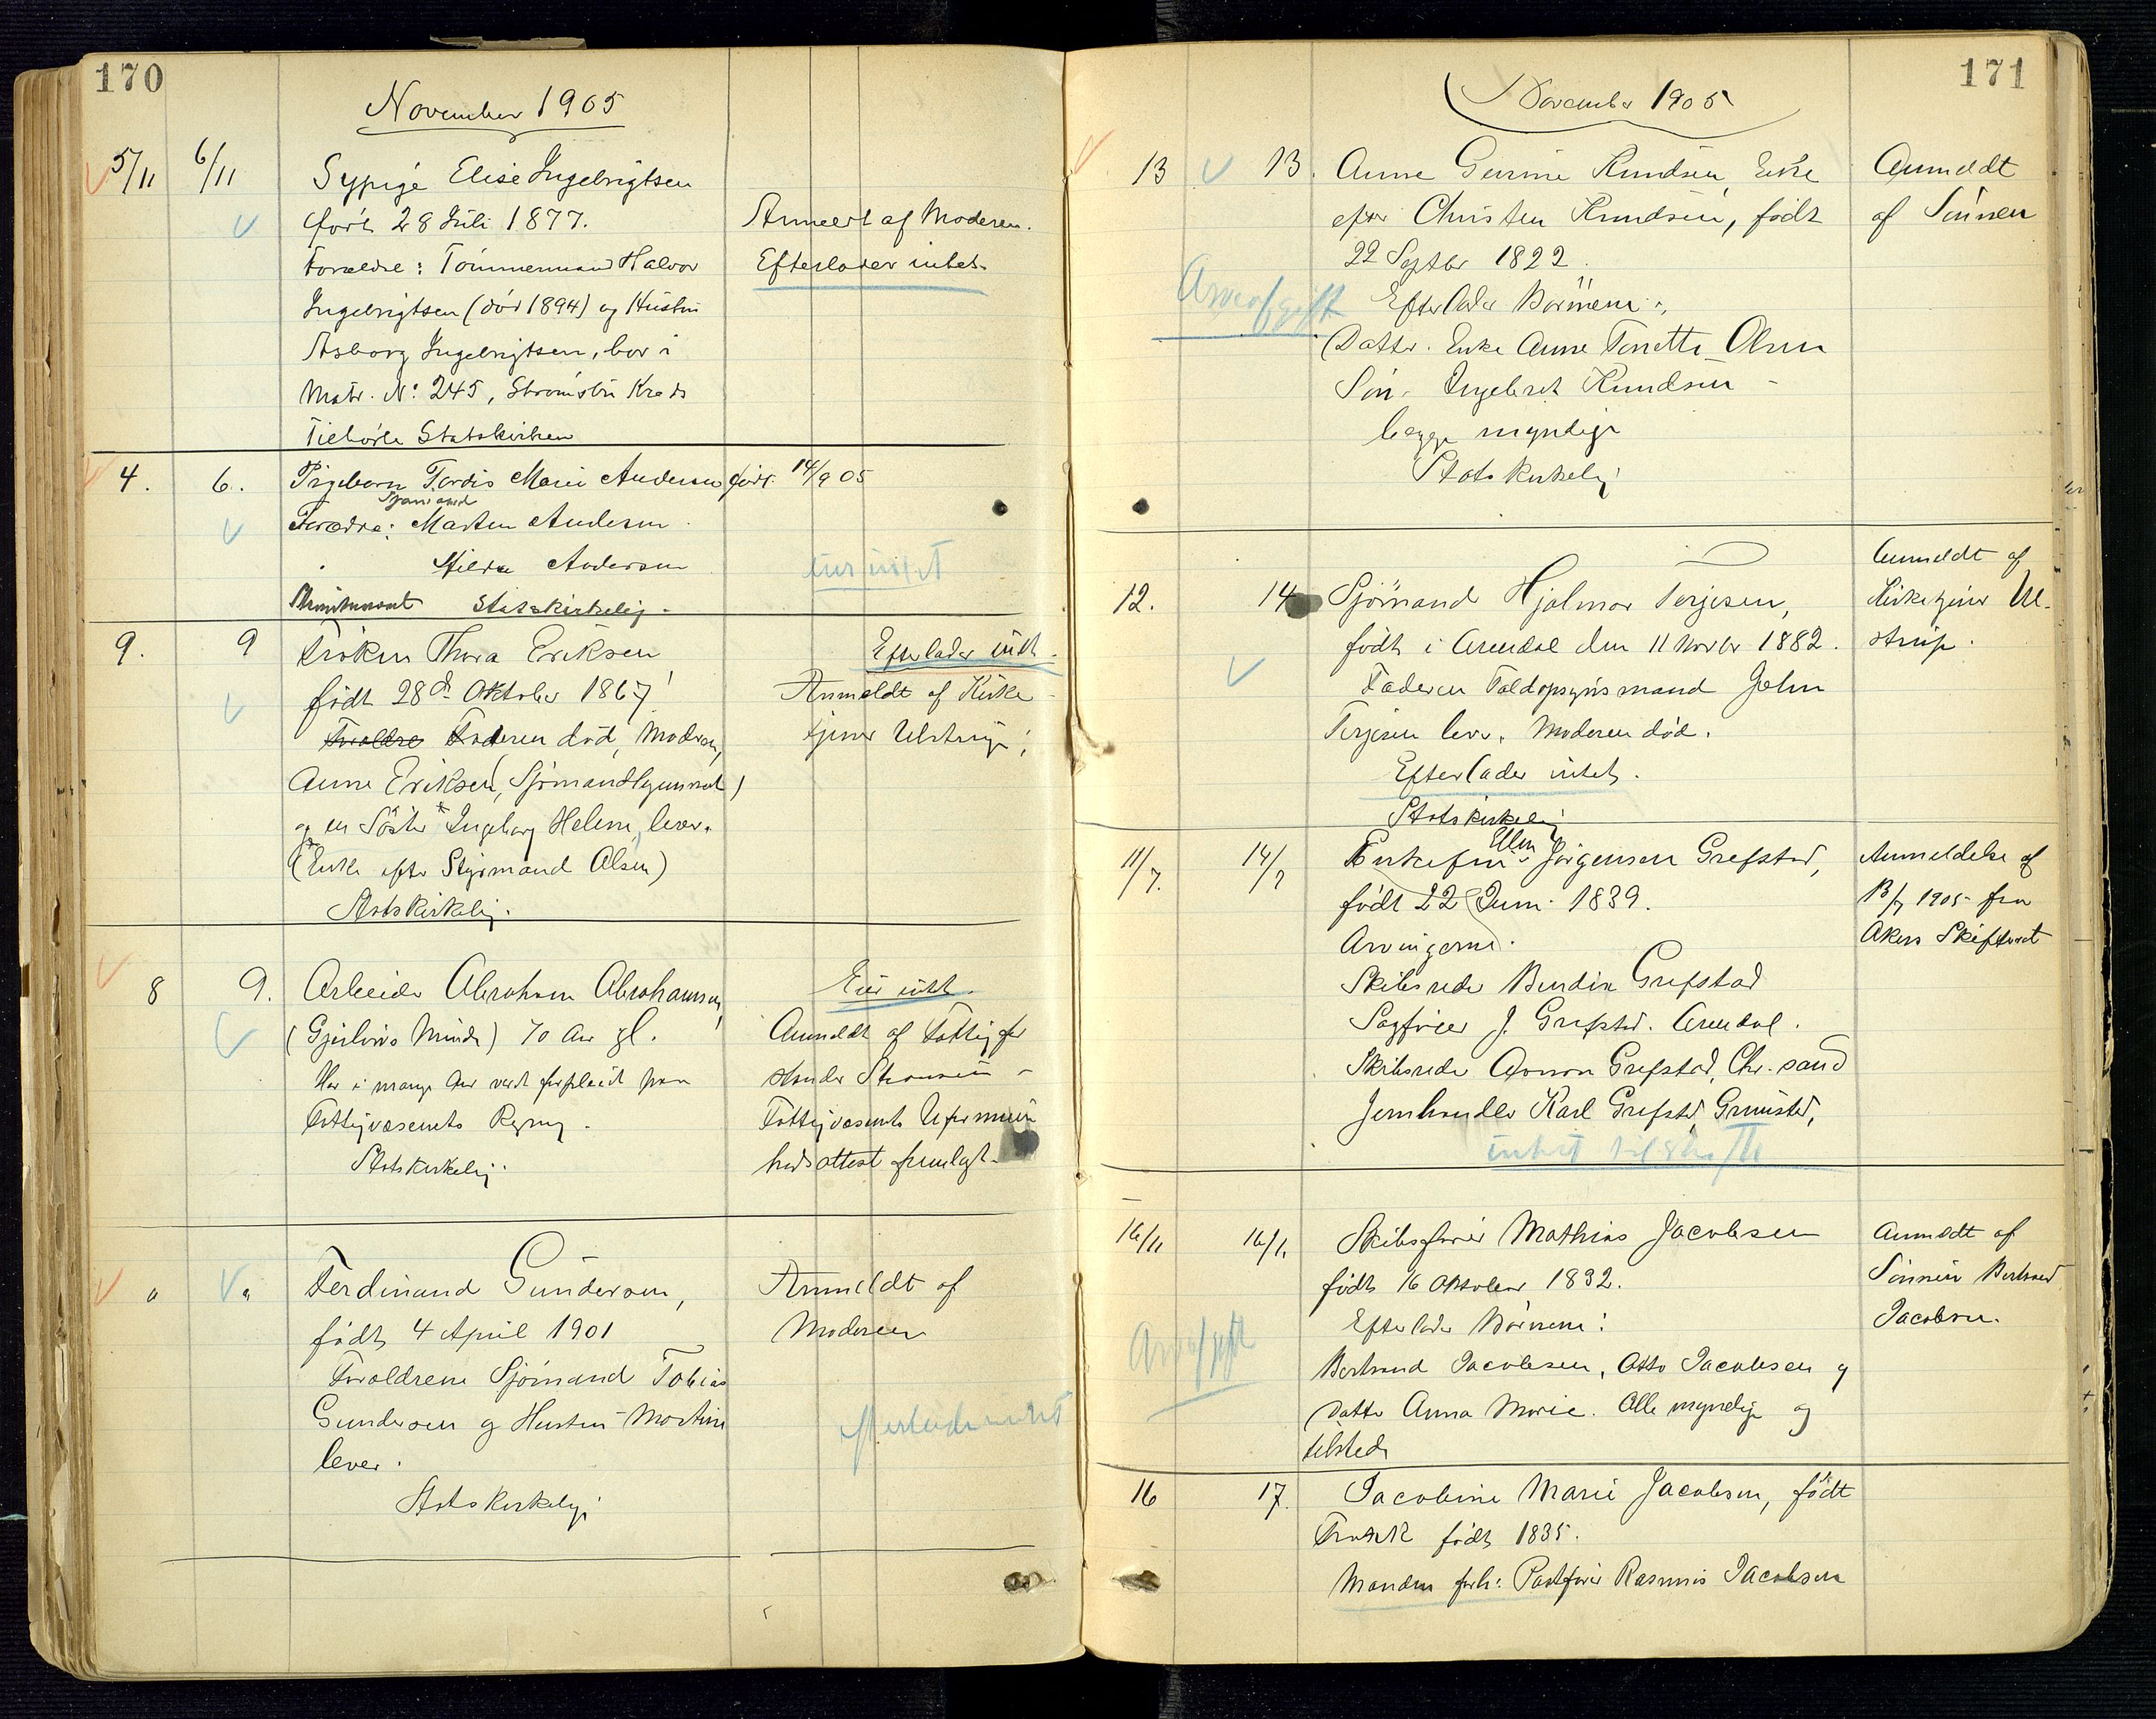 170
November 1905
5/11 6/11 Sypige Elise Ingebrigtsen
født 28 Juli 1877. Anmeldt af Moderen.
Forældre: Tømmermand Halvor Efterlader intet.
Ingebrigtsen (død 1894) og Hustru
Asborg Ingebrigtsen, bor i
Matr. No: 245, Strømsbu Kreds
Tilhørte Statskirken
4. 6. Pigebarn Tordis Marie Andersen født 14/9 05
Sjømand
Forældre: Martin Andersen
Hilda Andersen
eier intet
Statskirkelig.
9. 9 Frøken Thora Eriksen Efterlader intet.
født 28de Oktober 1867 Anmeldt af Kirke-
Forældre Faderen død, Moderen, tjener Ulstrup.
Anne Eriksen, Sjømand
og en Søster Ingeborg Helene, lever.
(Enke efter Styrmand Olsen)
Statskirkelig.
8 9. Arbeider Abraham Abrahamsen Eier intet.
70 Aar gl. Anmeldt af Fattigfor
Har i mange Aar vært forpleiet paa stander
Fattigvæsenets Regning. Fattigvæsenets Uformuen
Statskirkelig. hedsattest fremlagt.
Ferdinand Gundersen, Anmeldt af
født 4 April 1901 Moderen
Forældrene Sjømand Tobias
Gundersen og Hustru Martine efterlader intet
lever.
Statskirkelig
171
November 1905
13 13. Anne Gurine Knudsen, Enke Anmeldt
efter Christen Knudsen, født af Sønnen
22 Septbr 1822.
Arveafgift Efterlader Børnene:
Datter. Enke Anne Tonette Olsen
Søn. Ingebret Knudsen
begge myndige
Statskirkelig
12. 14 Sjømand Hjalmar Terjesen, Anmeldt af
født i Arendal den 11 Novbr 1882. Kirketjener Ul-
Faderen Toldopsynsmand John strup.
Terjesen lever. Moderen død.
Efterlader intet.
Statskirkelig
11/7. 14/7 Enkefru Ellen Jørgensen Grefstad, Anmeldelse af
født 22 Juni 1839. 13/7 1905 fra
Arvingerne. Akers Skifteret
Skibsreder Berdin Grefstad
Sagfører J. Grefstad. Arendal.
Skibsreder Aanon Grefstad, Chr.sand
Jernhandler Karl Grefstad, Grimstad,
intet til Skifte
16/11 16/11 Skibsfører Mathias Jacobsen Anmeldt af
født 16 Oktober 1832. Sønnen Bertrand
Arveafgift Efterlader Børnene: Jacobsen.
Bertrand Jacobsen, Otto Jacobsen og
Datter Anna Marie. Alle myndige og
tilstede
16 17. Jacobine Marie Jacobsen, født
født 1835.
Manden forh: Rasmus Jacobsen